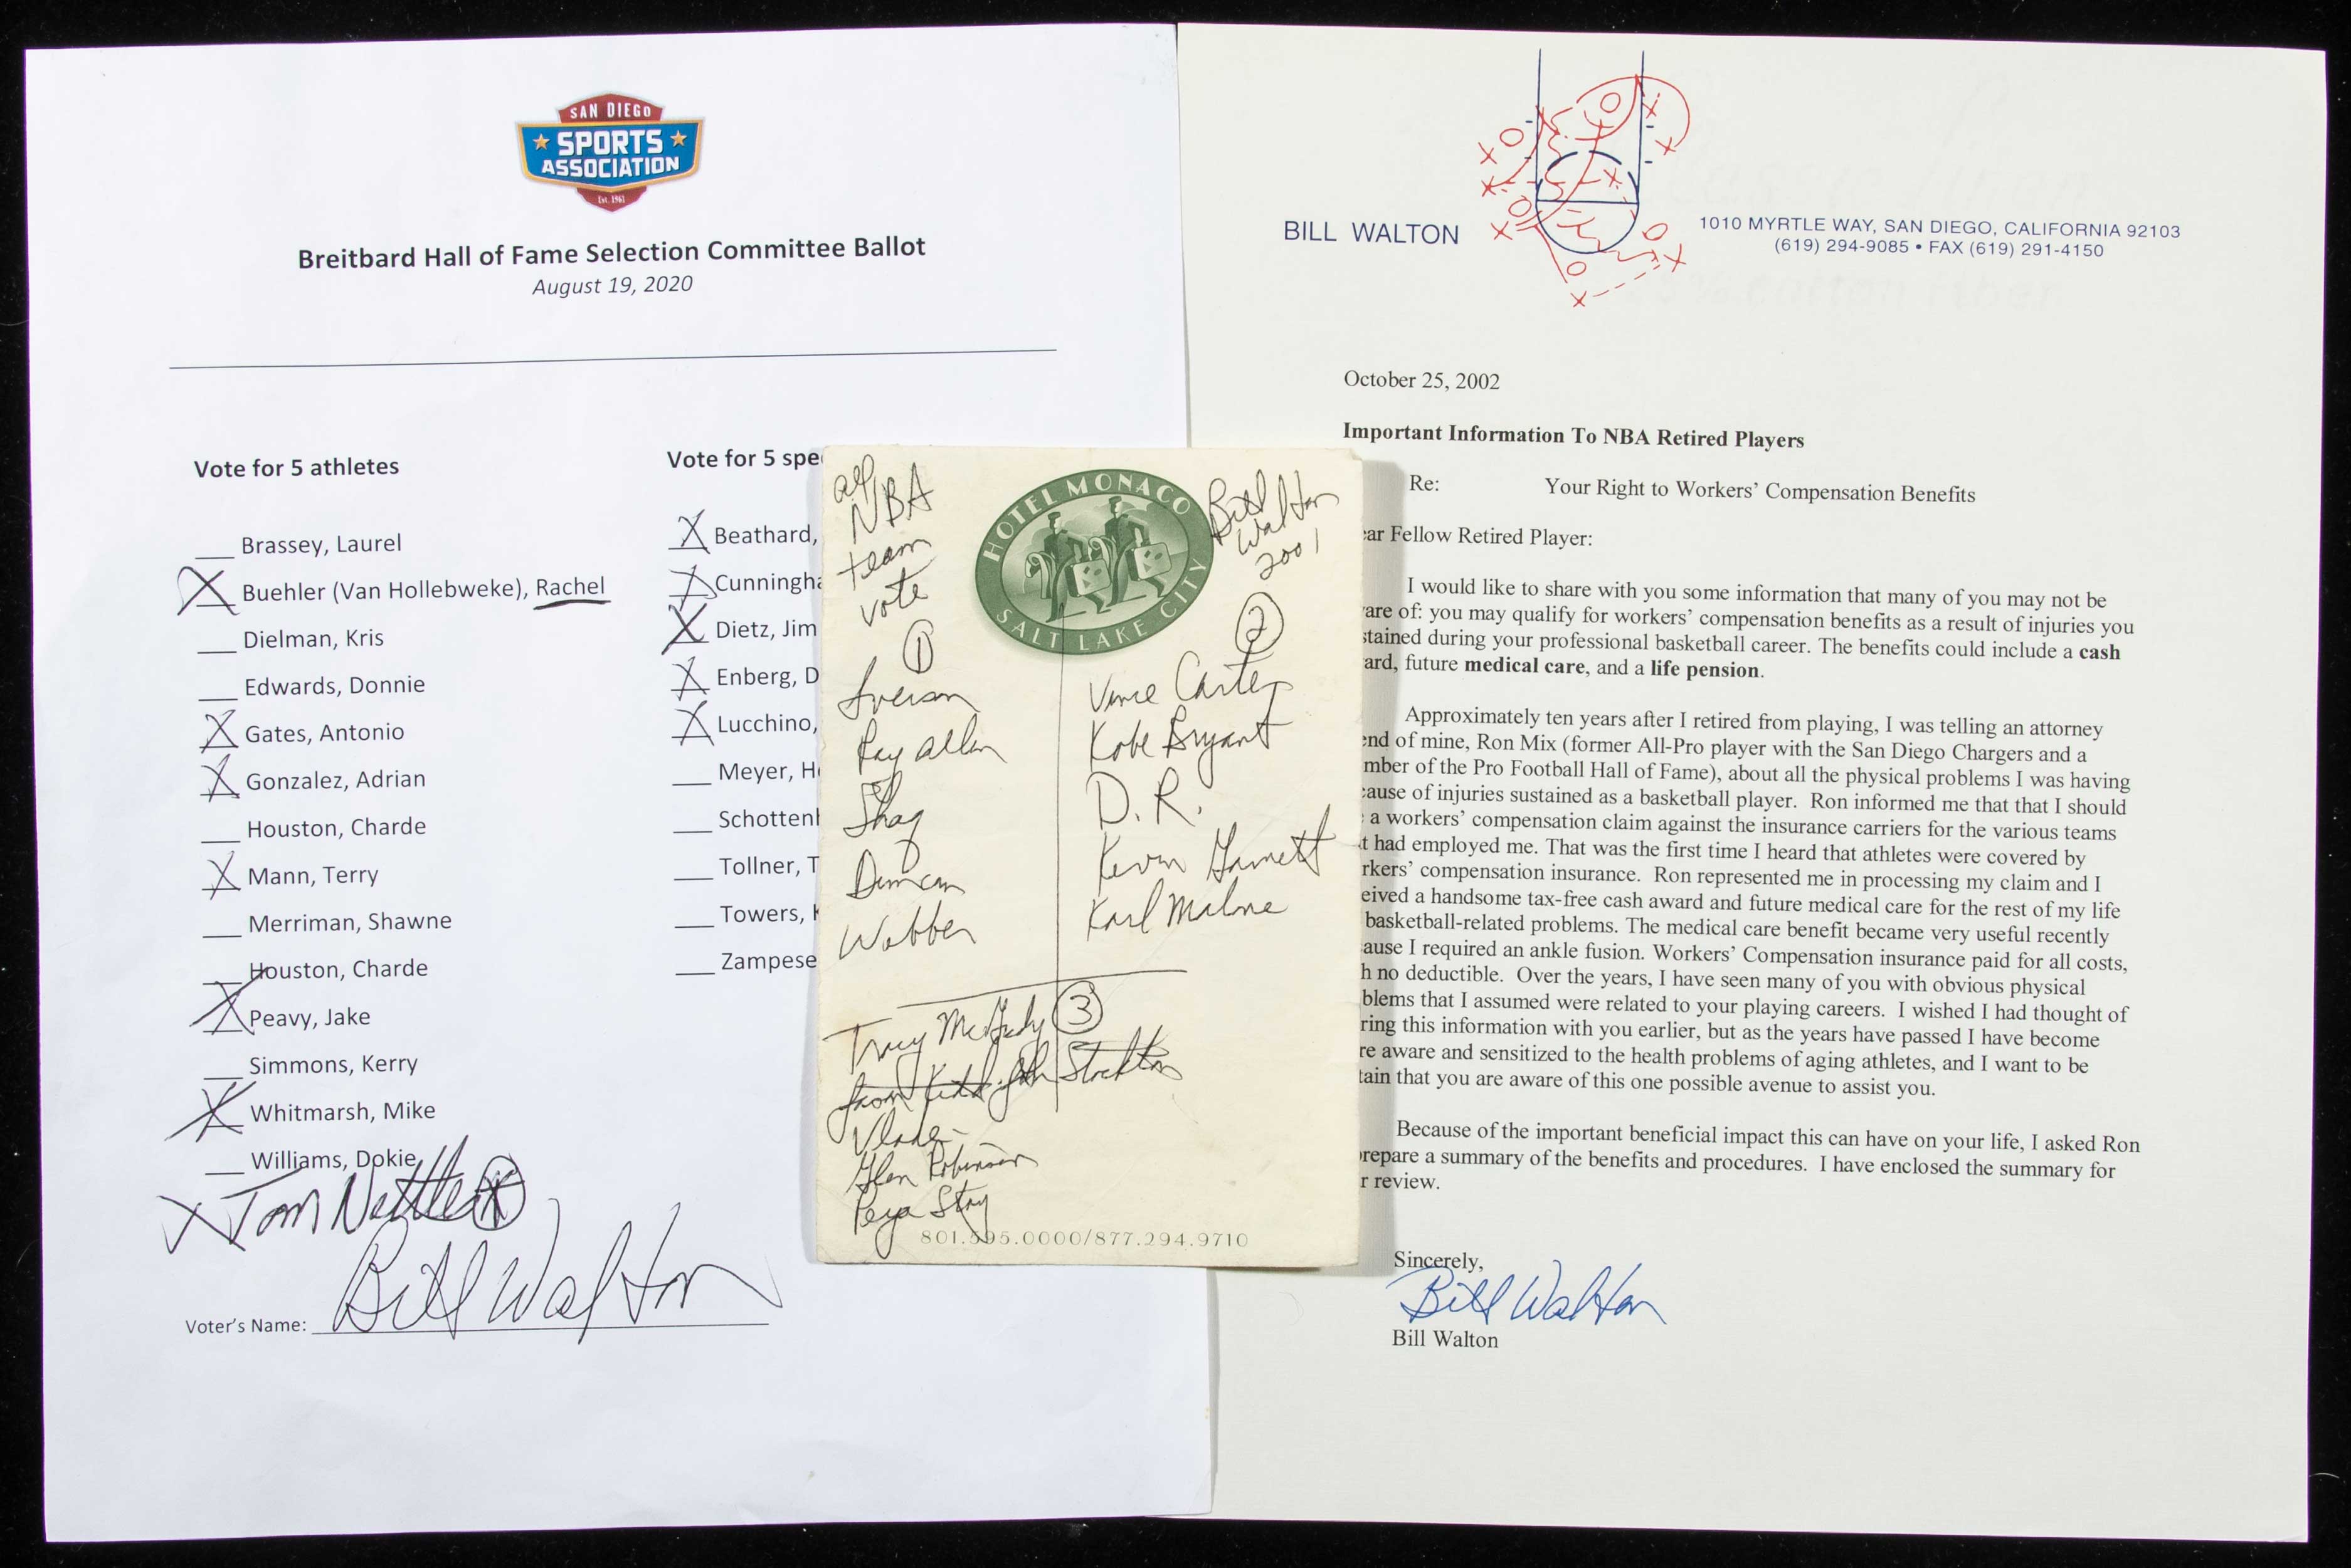 SAN DIEGO
SPORTS
ASSOCIATION
Est. 1961
Breitbard Hall of Fame Selection Committee Ballot
August 19, 2020
Vote for 5 athletes
___ Brassey, Laurel
X Buehler (Van Hollebweke), Rachel
___ Dielman, Kris
___ Edwards, Donnie
X Gates, Antonio
X Gonzalez, Adrian
___ Houston, Charde
X Mann, Terry
___ Merriman, Shawne
___ Houston, Charde
X Peavy, Jake
___ Simmons, Kerry
X Whitmarsh, Mike
___ Williams, Dokie
X Tom Nettles X
Voter's Name: Bill Walton
Vote for 5 spe
X Beathard,
X Cunningha
X Dietz, Jim
X Enberg, D
X Lucchino,
___ Meyer, H
___ Schotten
___ Tollner, T
___ Towers, K
___ Zampese
all
NBA
team
vote
HOTEL MONACO
SALT LAKE CITY
Bill
Walton
2001
1
Iverson
Ray Allen
Shaq
Duncan
Webber
2
Vince Carter
Kobe Bryant
D.R.
Kevin Garnett
Karl Malone
3
Tracy McGrady
Jason Kidd John Stockton
Vlade
Glen Robinson
Peja Stoy
801.595.0000/877.294.9710
BILL WALTON
1010 MYRTLE WAY, SAN DIEGO, CALIFORNIA 92103
(619) 294-9085 • FAX (619) 291-4150
October 25, 2002
Important Information To NBA Retired Players
Re: Your Right to Workers' Compensation Benefits
ar Fellow Retired Player:
I would like to share with you some information that many of you may not be
are of: you may qualify for workers' compensation benefits as a result of injuries you
stained during your professional basketball career. The benefits could include a cash
ard, future medical care, and a life pension.
Approximately ten years after I retired from playing, I was telling an attorney
end of mine, Ron Mix (former All-Pro player with the San Diego Chargers and a
mber of the Pro Football Hall of Fame), about all the physical problems I was having
cause of injuries sustained as a basketball player. Ron informed me that that I should
a workers' compensation claim against the insurance carriers for the various teams
t had employed me. That was the first time I heard that athletes were covered by
rkers' compensation insurance. Ron represented me in processing my claim and I
eived a handsome tax-free cash award and future medical care for the rest of my life
basketball-related problems. The medical care benefit became very useful recently
ause I required an ankle fusion. Workers' Compensation insurance paid for all costs,
h no deductible. Over the years, I have seen many of you with obvious physical
blems that I assumed were related to your playing careers. I wished I had thought of
ring this information with you earlier, but as the years have passed I have become
re aware and sensitized to the health problems of aging athletes, and I want to be
tain that you are aware of this one possible avenue to assist you.
Because of the important beneficial impact this can have on your life, I asked Ron
prepare a summary of the benefits and procedures. I have enclosed the summary for
r review.
Sincerely,
Bill Walton
Bill Walton